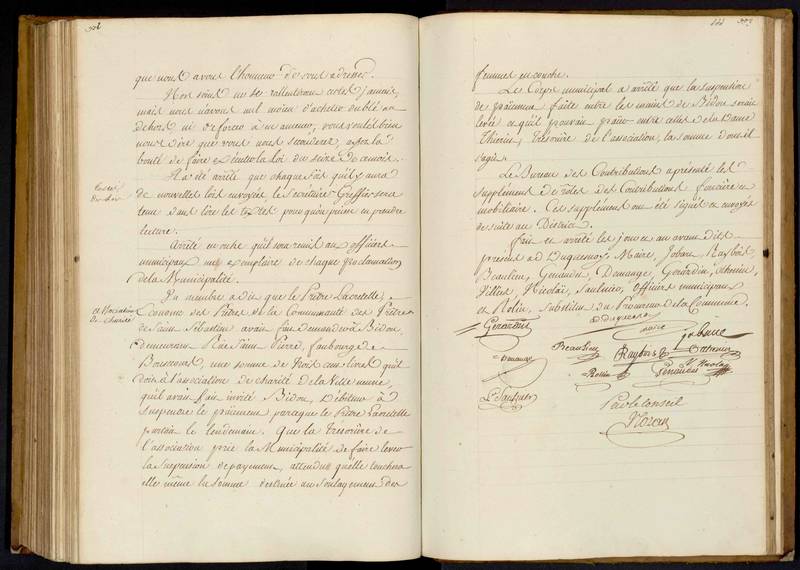 que nous avons l'honneur de vous adresser.
Nos soins ne se rallentiront certes jamais,
mais nous n'avons nul moien d'acheter du blé au
dehors ni de forcer à en amener; vous voulés bien
nous dire que vous nous seconderez, ayez la
bonté de faire exécuter la loi du seize de ce mois.
Il a été arrêté que chaque fois qu'il y aura
de nouvelles loix envoyées, le Secretaire Greffier sera
tenu d'en lire les titres pour qu'on puisse en prendre
lecture.
Arrêté en outre qu'il sera remis aux officiers
municipaux un exemplaire de chaque proclamation
de la Municipalité.
Association
de charité
Un membre a dit que le Prêtre Lacretelle,
Econome des Prêtres de la Communauté des Prêtres
de Saint Sébastien avait fait demander à Bidon,
demeurant Rue Saint Pierre, faubourg de
une somme de Trois cens livres qu'il
doit à l'association de charité de la Ville
qu'il avait fait invité Bidon, Débiteur à
suspendre le paiement parceque le Prêtre Lacretelle
partait le lendemain. Que la Trésorière de
l'association prie la Municipalité de faire lever
la suspension de payement, attendu qu'elle touchera
elle même la somme destinée au soulagement des
femmes en couche.
Le Corps municipal a arrêté que la suspension
de paiement faite entre les mains de Bidon serait
levée et qu'il pouvait païer entre celles de la Dame
Thiérin, Trésorière de l'association, la somme dont il
s'agit.
Le Bureau des Contributions a présenté les
supplément de rôles des Contributions foncière et
mobiliaire. Ces supplément ont été signés et envoyés
de suite au District.
Fait et arrêté les jour et an avant dits
présens Duquesnoy, Maire, Jobart, Raybois,
Beaulieu, Genaudet, Demange, Gérardin, Othenin,
Villiers, Nicolaï, Saulnier, officiers municipaux
et Rolin, substitut du Procureur de la Commune.
Gérardin
Duquesnoy
maire
Beaulieu
Raybois
Othenin
Demange
Rollin
Nicolaÿ
Par le Conseil